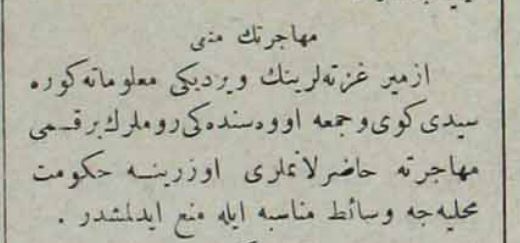 مهاجرتك منعى
ازمير غزته‌لرينك ويرديكى معلوماته كوره
سيدى كوى و جمعه اووه‌سنده كى روملرك بر قسمى
مهاجرته حاضرلانملرى اوزرينه حكومت
محليه‌جه وسائط مناسبه ايله منع ايدلمشدر .